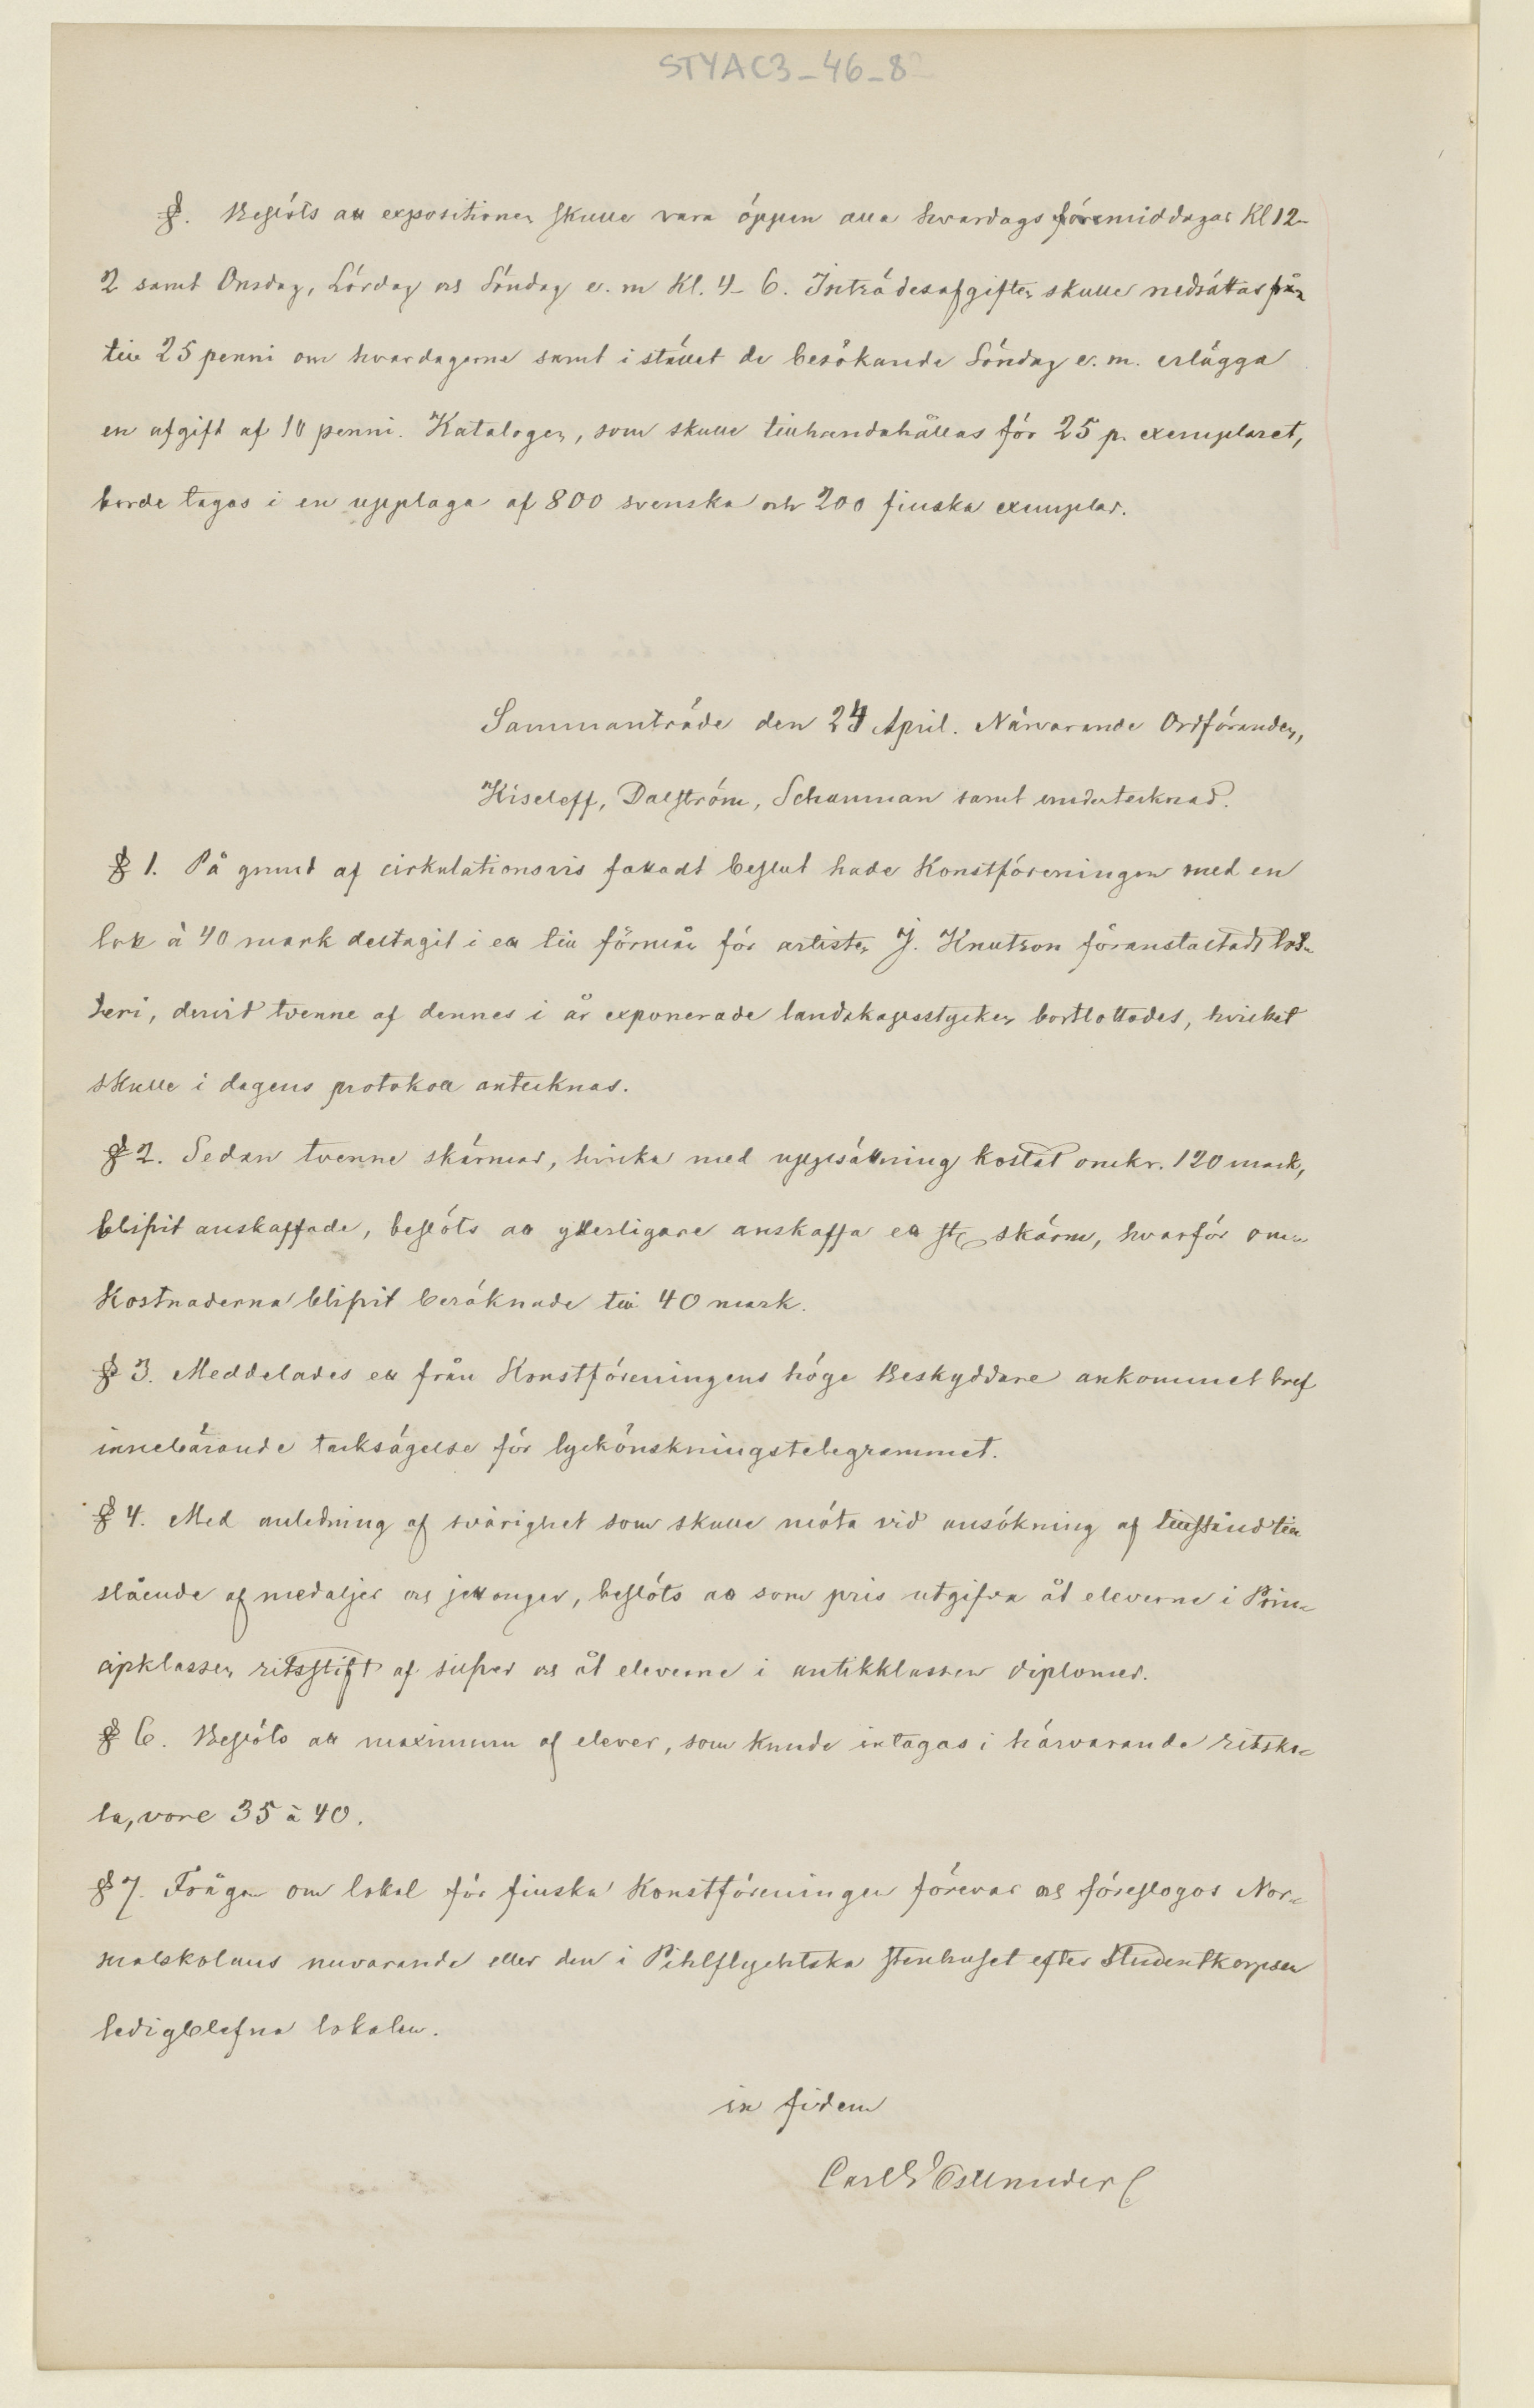 STYAC3_46_8
§. Beslöts att expositionen skulle vara öppen alla hvardags förmiddagar Kl 12-
2 samt Onsdag, Lördag och Söndag e. m Kl. 4-6. Inträdesafgiften skulle nedsättas
till 25 penni om hvardagarne samt i stället de besökande Söndag e. m. erlägga
en afgift af 10 penni. Katalogen, som skulle tillhandahållas för 25 p. exemplaret,
borde tagas i en upplaga af 800 svenska och 200 finska exemplar.
Sammanträde den 24 April. Närvarande Ordföranden,
Kiseleff, Dalström, Schauman samt undertecknad.
§ 1. På grund af cirkulationsvis fattadt beslut hade Konstföreningen med en
lott à 40 mark deltagit i ett till förmån för artisten J. Knutson föranstaltadt lot-
teri, dervid tvenne af dennes i år exponerade landskapsstycken bortlottades, hvilket
skulle i dagens protokoll antecknas.
§ 2. Sedan tvenne skärmar, hvilka med uppsättning kostat omkr. 120 mark,
blifvit anskaffade, beslöts att ytterligare anskaffa en st. skärm, hvarför om-
kostnaderna blifvit beräknade till 40 mark.
§ 3. Meddelades ett från Konstföreningens höge Beskyddare ankommet bref
innebärande tacksägelse för lyckönskningstelegrammet.
§ 4. Med anledning af svårighet som skulle möta vid ansökning af tillstånd till
slående af medaljer och jettonger, beslöts att som pris utgifva åt eleverne i Prin-
cipklassen ritsstift af silfver och åt eleverne i antikklassen diplomer.
§ 6. Beslöts att maximum af elever, som kunde intagas i härvarande ritsko-
la, vore 35 à 40.
§ 7. Frågan om lokal för finska Konstföreningen förevar och föreslogos Nor-
malskolans nuvarande eller den i Pihlflychtska stenhuset efter Studentkorpsen
ledigblefna lokalen.
in fidem
Carl G Estlander